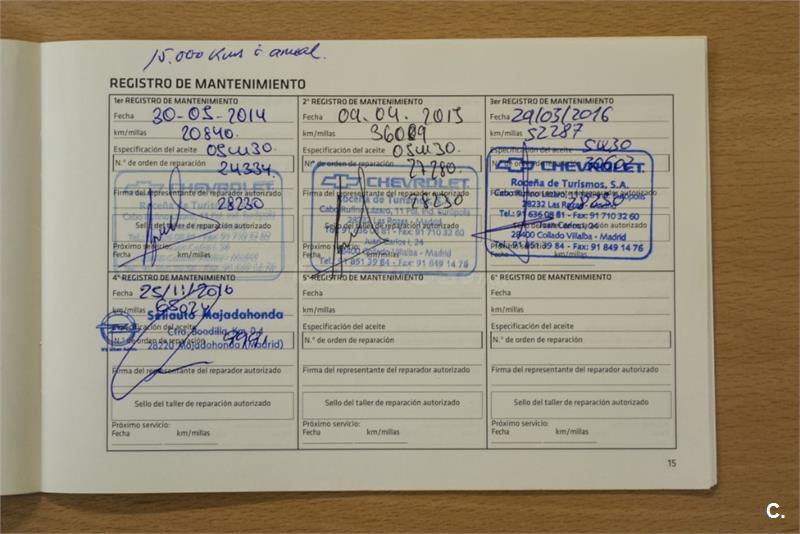 15.000 Kms ó anual.
REGISTRO DE MANTENIMIENTO
1er REGISTRO DE MANTENIMIENTO
Fecha 30-05-2014
km/millas 20840.
Especificación del aceite 05W30.
N.° de orden de reparación 24334.
Firma del representante del reparador autorizado
28230
CHEVROLET
Sello del taller de reparación autorizado
Próximo servicio:
Fecha km/millas
2° REGISTRO DE MANTENIMIENTO
Fecha 09.04.2015
km/millas
Especificación del aceite 05W30.
N.° de orden de reparación 27280.
CHEVROLET
28230
Roceña de Turismos
Cabo Rufino Lázaro, 11 Pol. Ind. Európolis
28232 Las Rozas - Madrid
Tel.: 91 636 08 81 - Fax: 91 710 32 60
Juan Carlos I, 24
28400 Collado Villalba - Madrid
Tel.: 91 851 39 84 - Fax: 91 849 14 76
3er REGISTRO DE MANTENIMIENTO
Fecha 29/03/2016
km/millas 52287
Especificación del aceite 5W30
N.° de orden de reparación
CHEVROLET
Roceña de Turismos, S.A.
Cabo Rufino Lázaro
28232 Las Rozas - Madrid
Tel.: 91 636 08 81 - Fax: 91 710 32 60
Juan Carlos I, 24
28400 Collado Villalba - Madrid
Tel.: 91 851 39 84 - Fax: 91 849 14 76
4° REGISTRO DE MANTENIMIENTO
Fecha 25/11/2016
km/millas
Sellauto Majadahonda
Especificación del aceite
Ctra. Boadilla, Km. 0,4
N.° de orden de reparación
28220 Majadahonda (Madrid)
Firma del representante del reparador autorizado
Sello del taller de reparación autorizado
Próximo servicio:
Fecha km/millas
5° REGISTRO DE MANTENIMIENTO
Fecha
km/millas
Especificación del aceite
N.° de orden de reparación
Firma del representante del reparador autorizado
Sello del taller de reparación autorizado
Próximo servicio:
Fecha km/millas
6° REGISTRO DE MANTENIMIENTO
Fecha
km/millas
Especificación del aceite
N.° de orden de reparación
Firma del representante del reparador autorizado
Sello del taller de reparación autorizado
Próximo servicio:
Fecha km/millas
15
C.